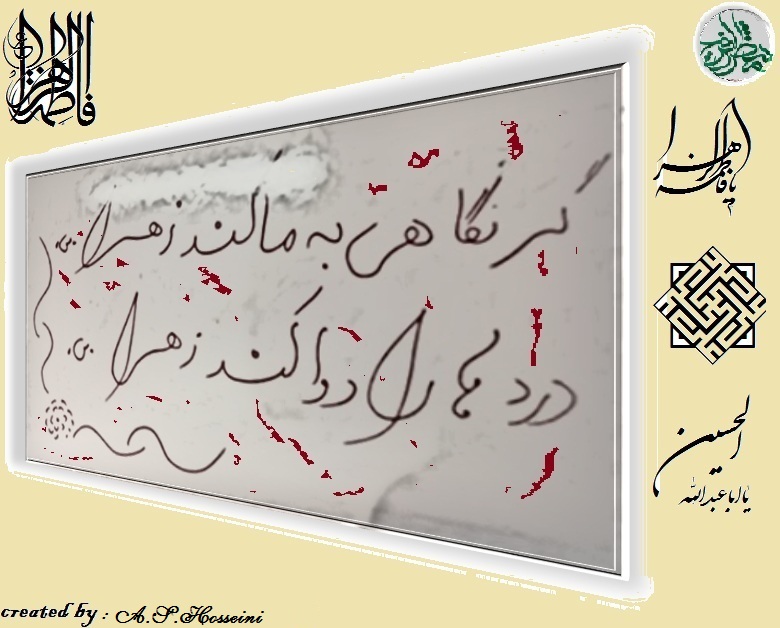 فاطمة الزهراء
گر نگاهی به ما کند زهرا س
درد ها را دوا کند زهرا س
یا فاطمة الزهرا
الحسین
یا اباعبدالله
created by : A.S.Hosseini